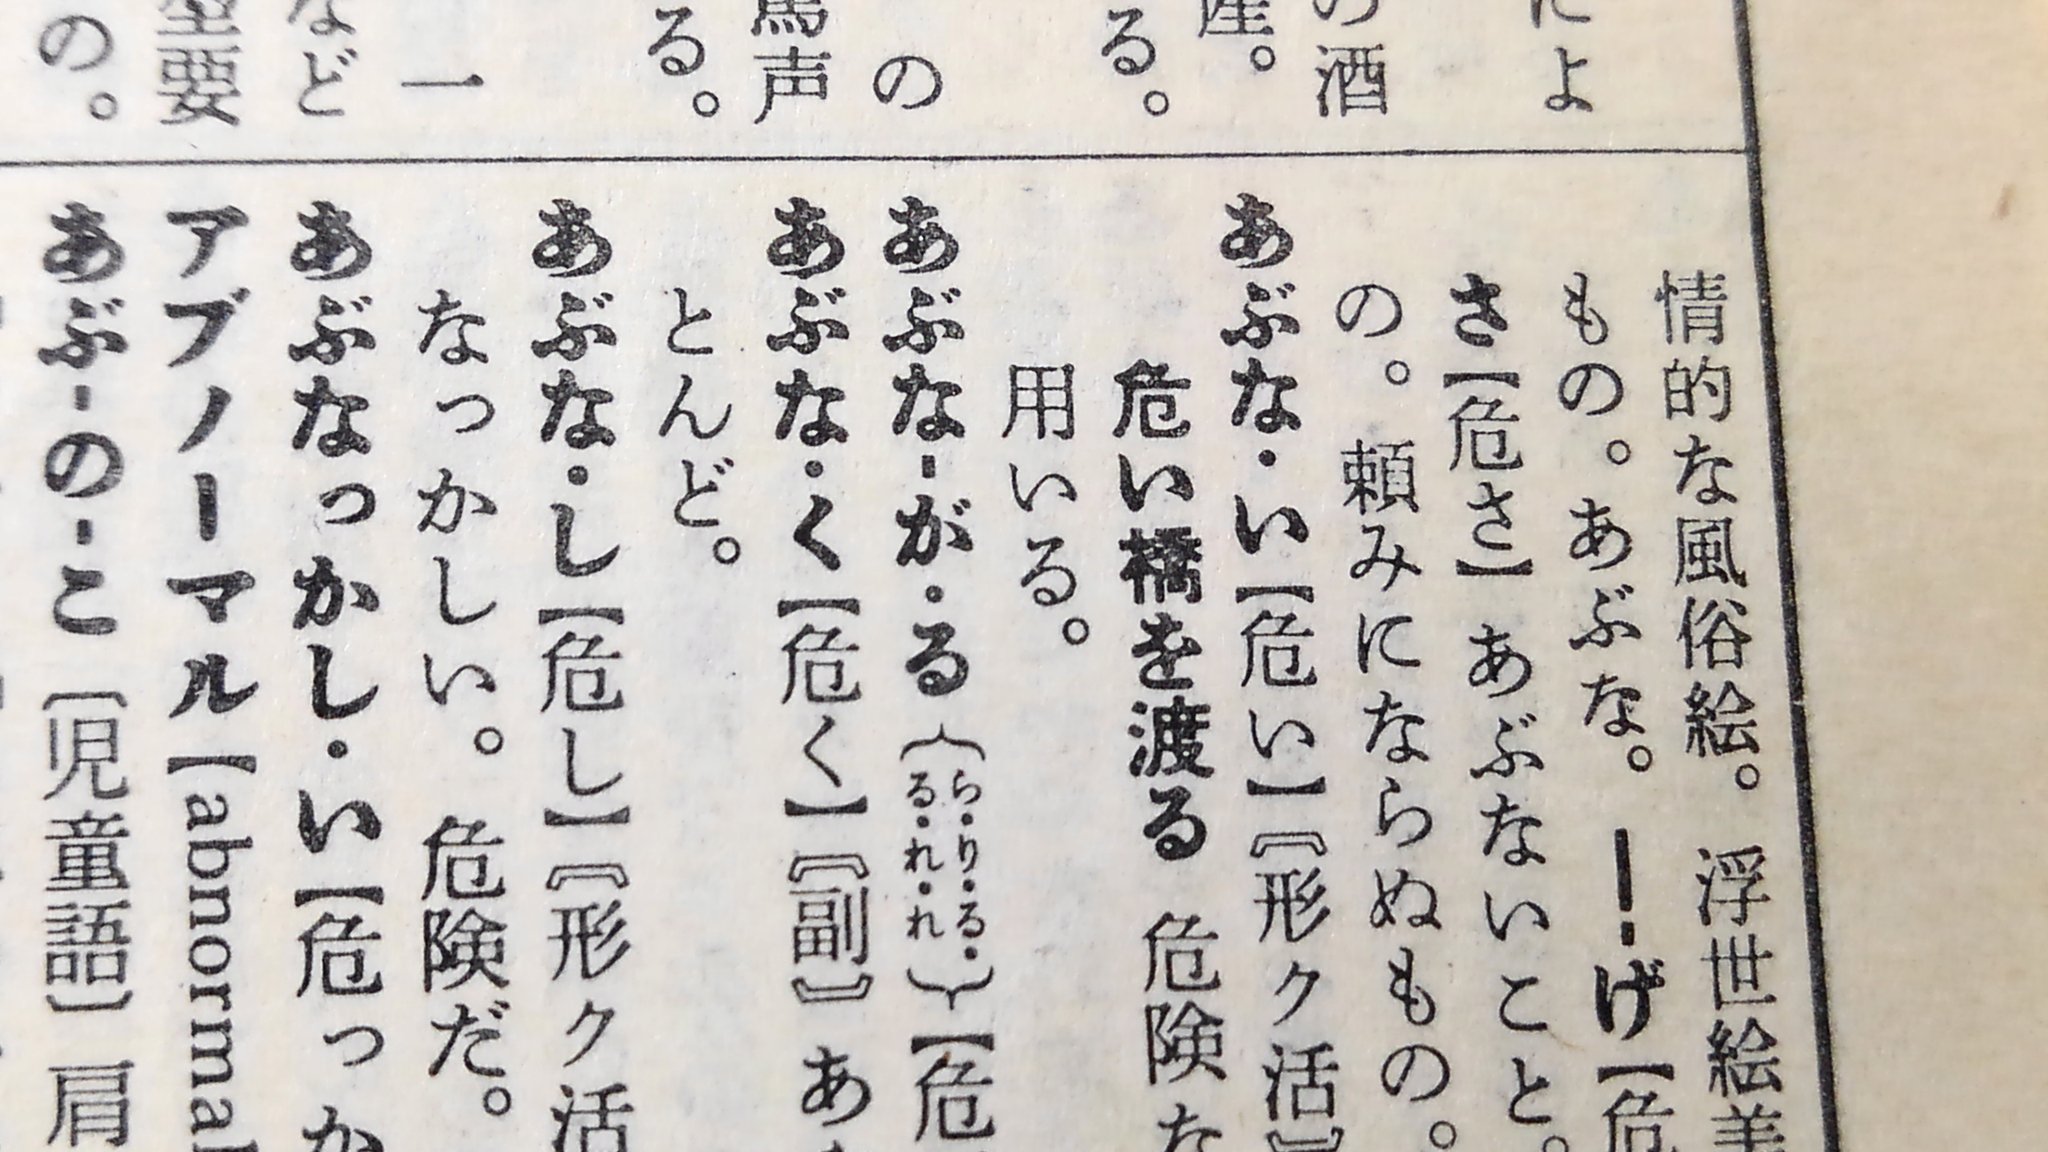 によ
の酒
産。
る。
の
罵声
る。
一
など
重要
の。
情的な風俗絵。浮世絵美
もの。あぶな。――げ【危
さ【危さ】あぶないこと。
の。頼みにならぬもの。
あぶな・い【危い】『形ク活』
危い橋を渡る 危険な
用いる。
あぶな-が・る(ら・り・る・る・れ・れ)【危
あぶな・く【危く】『副』あ
とんど。
あぶな・し【危し】『形ク活
なっかしい。危険だ。
あぶなっかし・い【危っか
アブノーマル【abnormal
あぶ-の-こ〔児童語〕肩